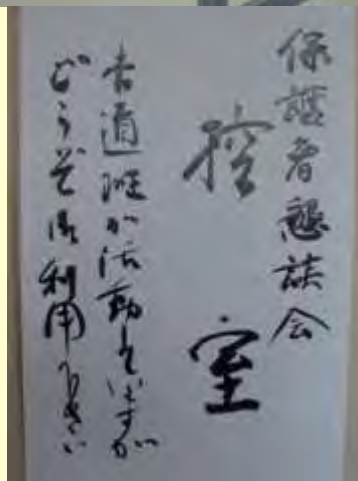 保護者懇談会
控室
書道班が活動していますが
どうぞ御利用下さい